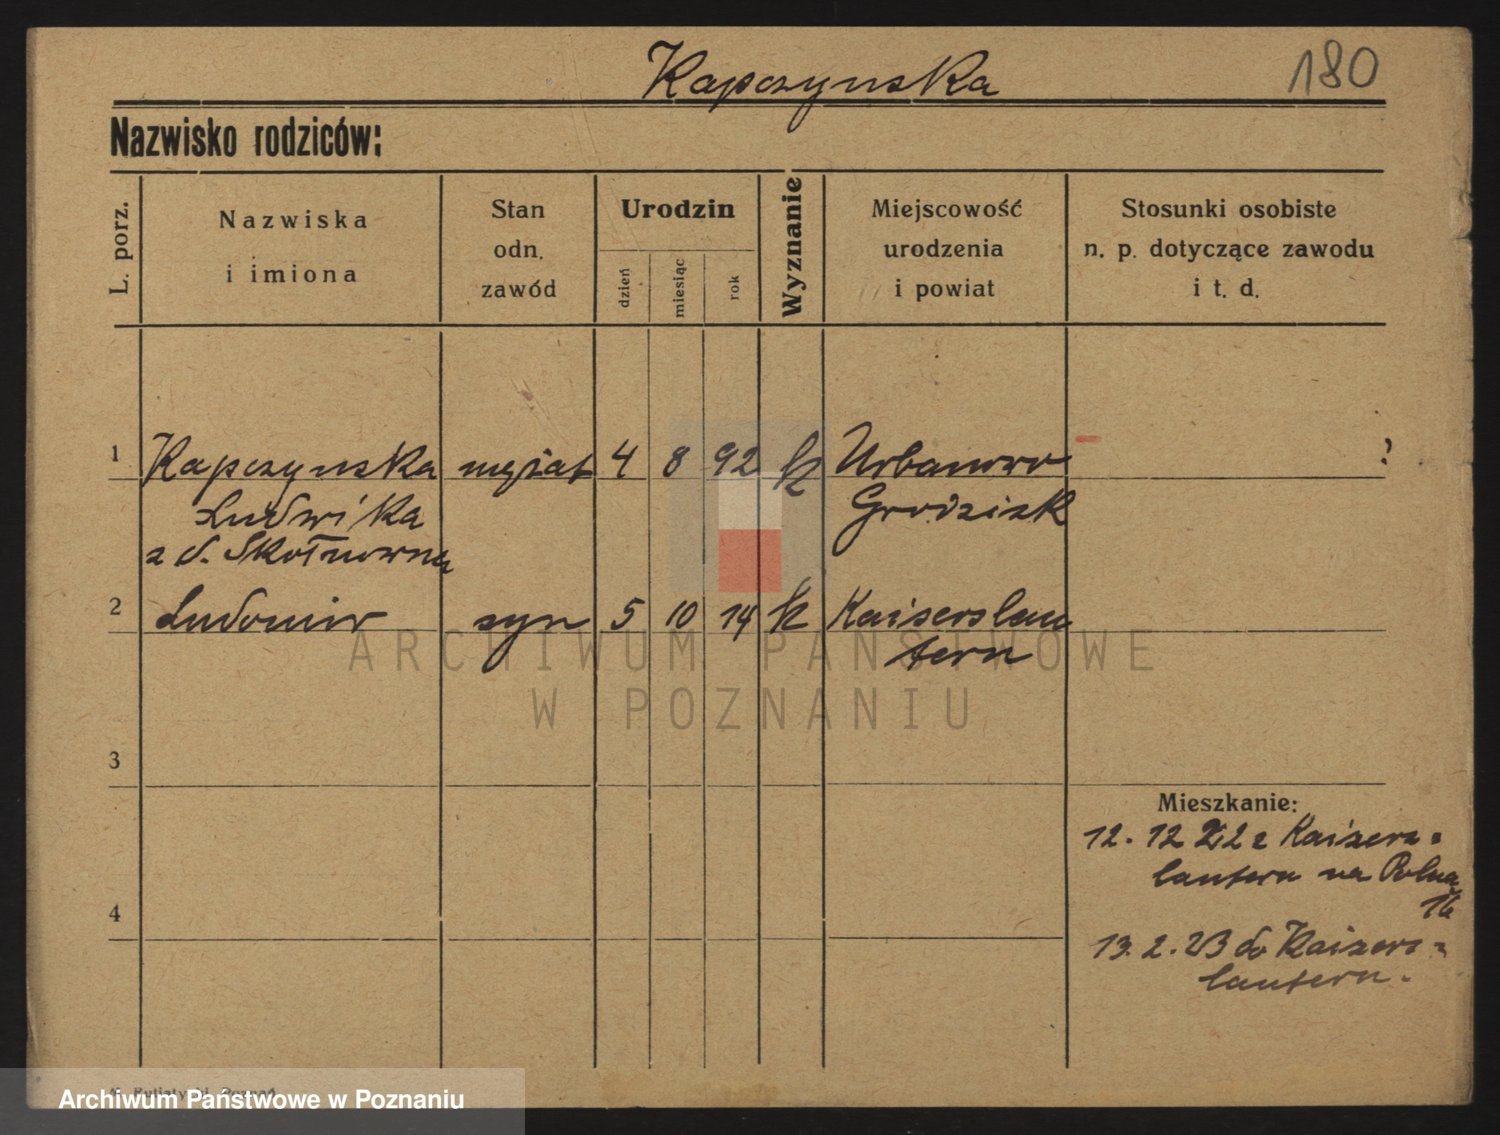 Kapczynska
180
Nazwisko rodziców:
L. porz.
Nazwiska
i imiona
Stan
odn.
zawód
Urodzin
dzień
miesiąc
rok
Wyznanie
Miejscowość
urodzenia
i powiat
Stosunki osobiste
n. p. dotyczące zawodu
i t. d.
1 Kapczynska mężat 4 8 92 k Urbanowo
Ludwika Grodzisk
z d. Skołnowna
2 Ludomir syn 5 10 14 k Kaiserslau
tern
3
4
Mieszkanie:
12. 12 22 z Kaisers=
lautern na Polna
16
13. 2. 23 do Kaisers=
lautern.
ARCHIWUM PAŃSTWOWE
W POZNANIU
Poznań
Archiwum Państwowe w Poznaniu